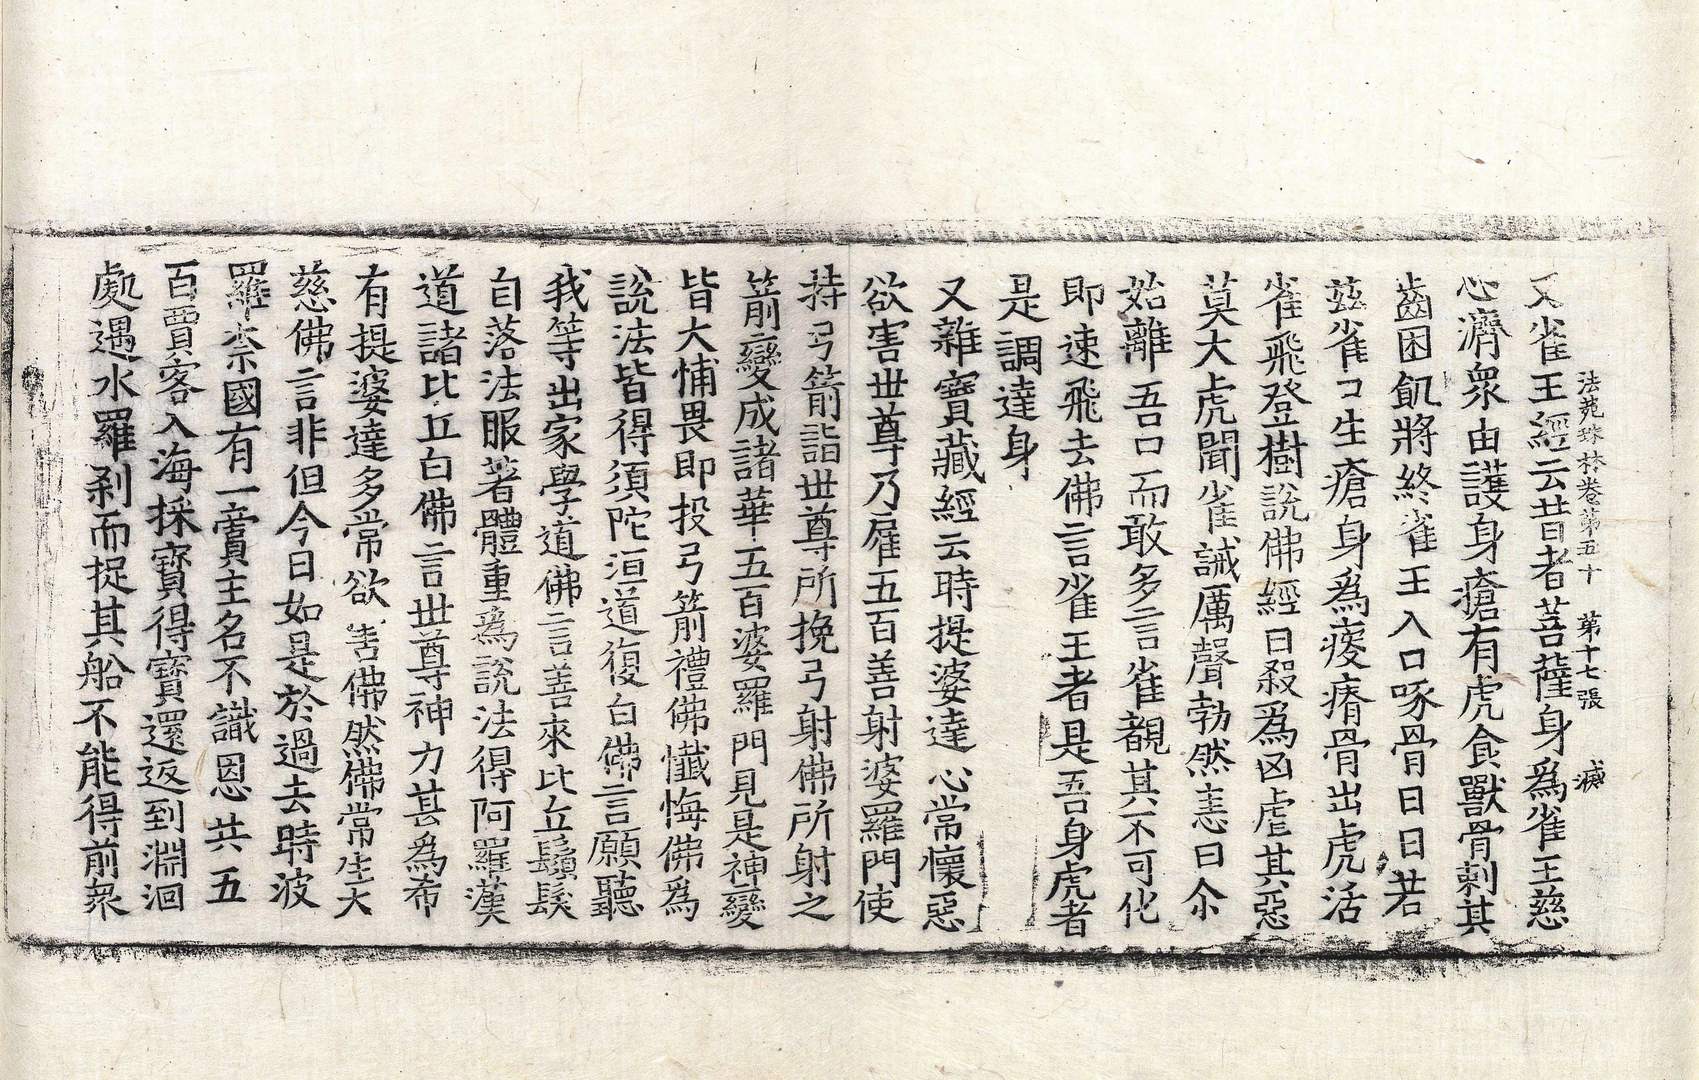 法苑珠林卷第五十 第十七張
又雀王經云昔者菩薩身爲雀王慈
心濟衆由護身瘡有虎食獸骨剌其
齒困飢將終雀王入口啄骨日日若
茲雀口生瘡身爲瘦瘠骨出虎活
雀飛登樹說佛經曰殺爲凶虐其惡
莫大虎聞雀誡厲聲勃然恚曰尒
始離吾口而敢多言雀覩其不可化
即速飛去佛言雀王者是吾身虎者
是調達身
又雜寶藏經云時提婆達心常懷惡
欲害世尊乃雇五百善射婆羅門使
持弓箭詣世尊所挽弓射佛所射之
箭變成諸華五百婆羅門見是神變
皆大怖畏即投弓箭禮佛懺悔佛爲
說法皆得須陀洹道復白佛言願聽
我等出家學道佛言善來比丘鬚髮
自落法服著體重爲說法得阿羅漢
道諸比丘白佛言世尊神力甚爲希
有提婆達多常欲害佛然佛常生大
慈佛言非但今日如是於過去時波
羅柰國有一啇主名不識恩共五
百賈客入海採寶得寶還返到淵洄
處遇水羅刹而捉其船不能得前衆